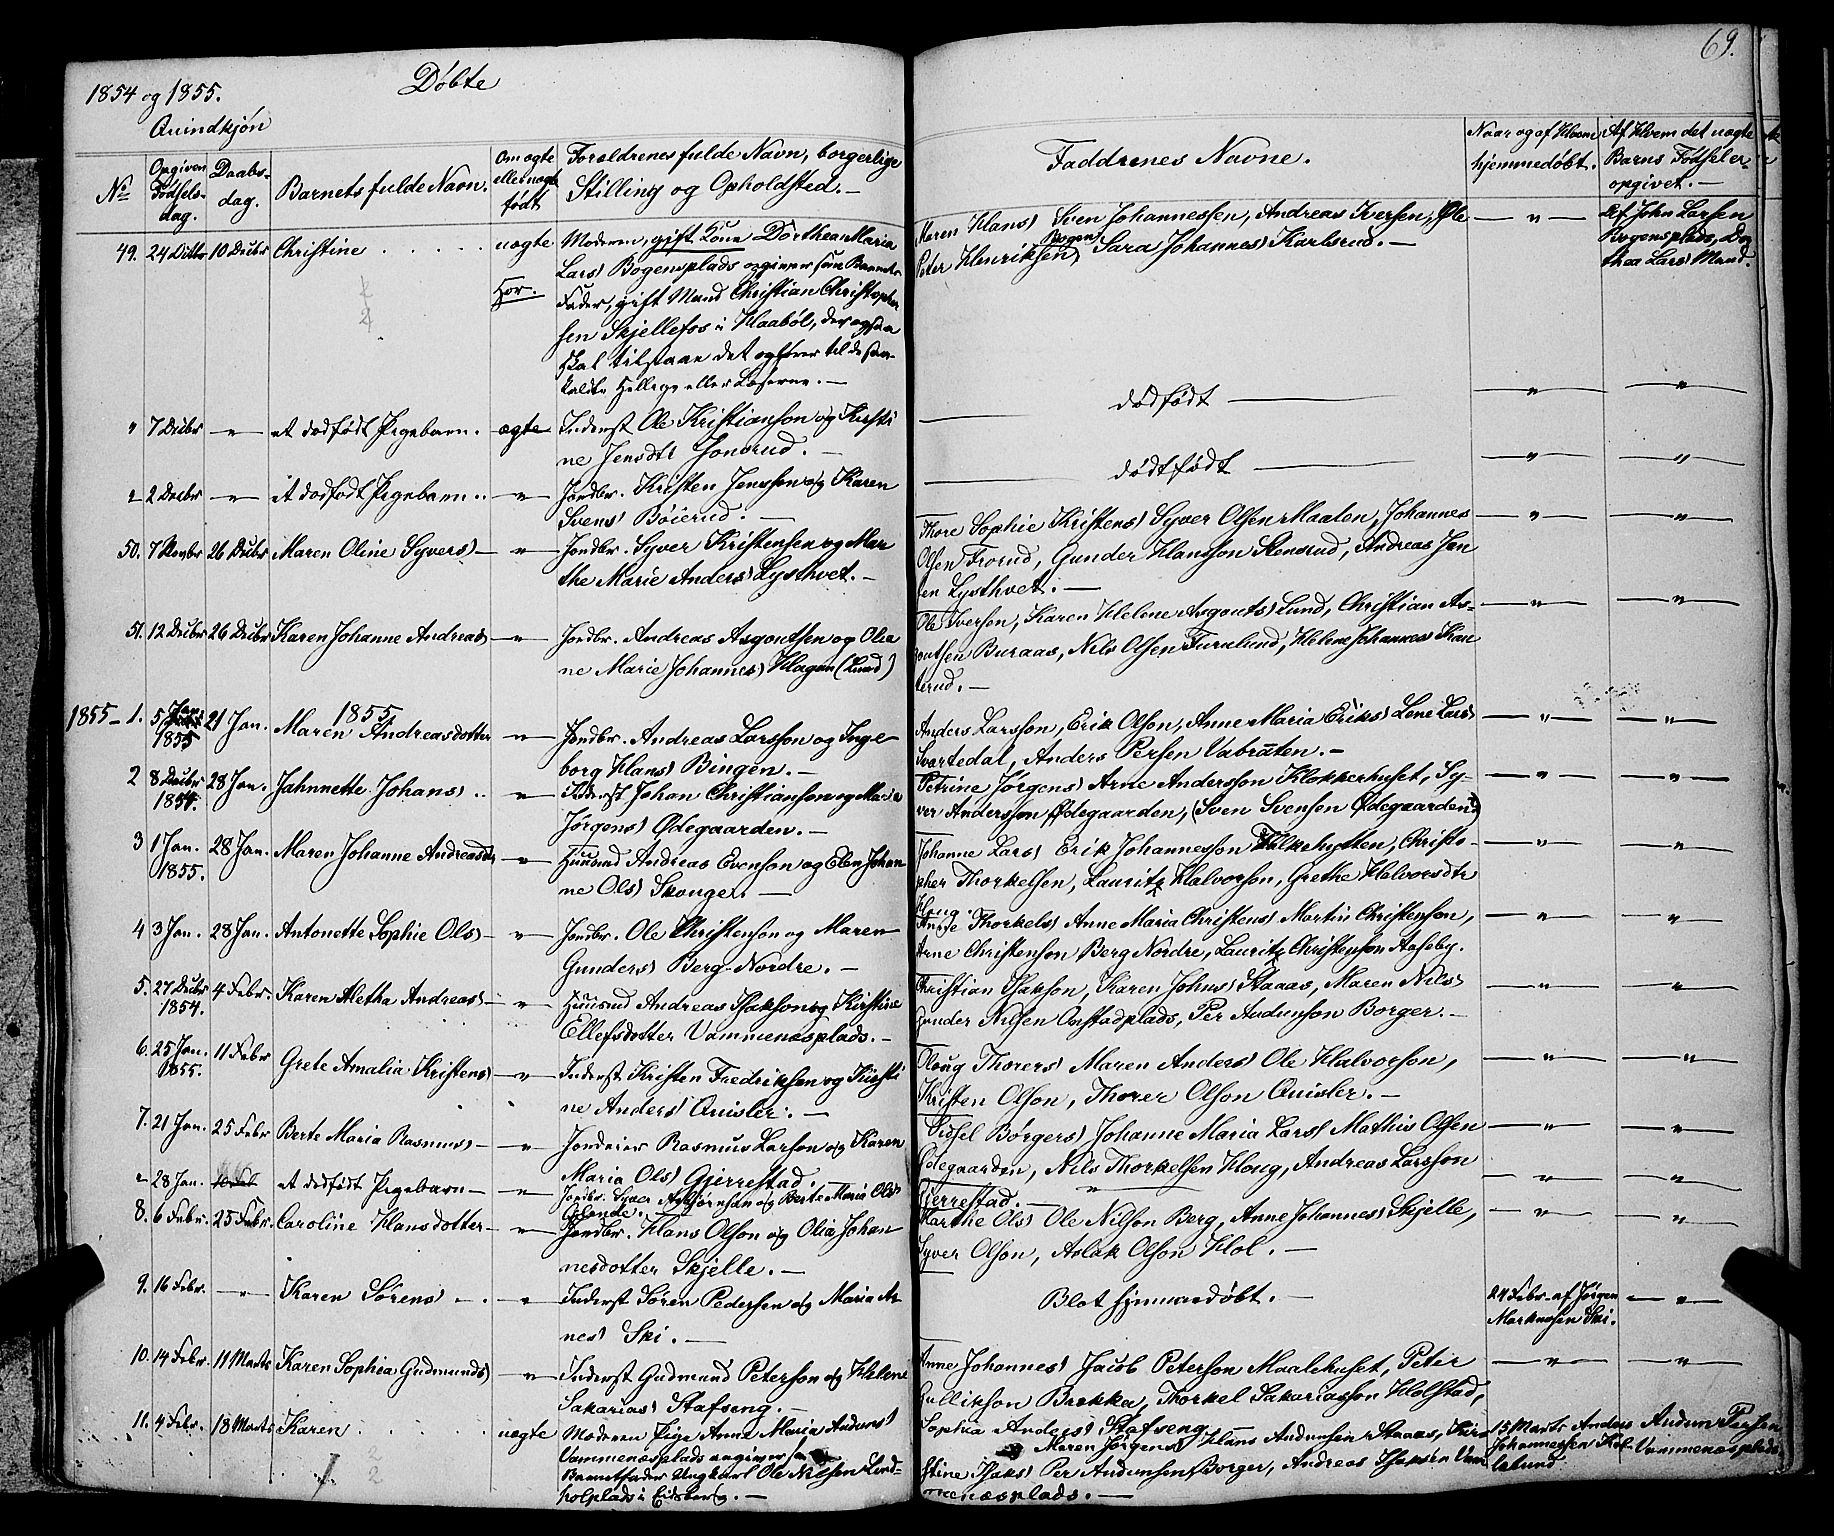 69.
1854 og 1855.
Døbte
Qvindkjøn
No
Opgiven Fødselsdag.
Daabsdag.
Barnets fulde Navn.
Om ægte eller uægte født
Forældrenes fulde Navn, borgerlige Stilling og Opholdsted. —
Faddrenes Navne.
Naar og af Hvem hjemmedøbt.
Af Hvem det uægte Barns Fødsel er opgivet. —
49. 24 Octbr 10 Decbr Christine . . . . . uægte
Hor.
Moderen, gift Kone Dorthea Maria
Lars) Bogensplads opgiver som Barnets
Fader, gift Mand Christian Christopher
sen Skjellefos i Haabøl, der ogsaa
skal tilstaae det og hører til de saa-
kaldte Hellige eller Læserne. —
Maren Hans) Sven Johannessen, Andreas Iversen, Ole
Peter Henriksen Bogen, Sara Johannes) Karlsrud. —
— " —
Af John Larsen
Bogensplads, Do
thea Lars) Mand.
" 7 Decbr — " — et dødfødt Pigebarn. ægte
Inderst Ole Kristianson og Kristi
ne Jensdtr Sonsrud. —
dødfødt
— " — — " —
" 2 Decbr — " — et dødfødt Pigebarn .. — " —
Jordbr. Kristen Jensson og Karen
Svens) Böierud. —
dødtfødt
— " — — " —
50. 7 Novbr 26 Decbr Maren Oline Syvers) — " —
Jordbr. Syver Kristensen og Mar
the Marie Anders) Lysthvet. —
Thore Sophie Kristens) Syver Olsen Maalen, Johannes
Olsen Frorud, Gunder Hansson Stensrud, Andreas Jan
sen Lysthvet. —
— " — — " —
51. 12 Decbr 26 Decbr Karen Johanne Andreas) — " —
Jordbr. Andreas Asgoutsen og Olea
ne Marie Johannes) Hagen (Lund)
Ole Iverson, Karen Helene Asgouts) Lund, Christian As-
goutsen Buraas, Nils Olsen Furulund, Helene Johannes) Kan
terud. —
— " — — " —
1855
1855 — 1. 5 Jan. 1855 21 Jan. Maren Andreasdotter — " —
Jordbr. Andreas Larsson og Inge-
borg Hans) Bingen. —
Anders Larsson, Erik Olson, Anne Maria Eriks) Lene Lars)
Svartedal, Anders Persen Vabråten. —
— " — — " —
2 8 Decbr 1854. 28 Jan. Jahnnette Johans) .. — " —
Inderst Johan Christianson og Maria
Jørgens) Ødegaarden. —
Petrine Jørgens) Arne Andersson Klokkerhuset, Sy-
ver Andersson Ødegaarden, (Sven Svensen Ødegaarden)
— " — — " —
3 1 Jan. 1855. 28 Jan. Maren Johanne Andreasdtr — " —
Huusmd Andreas Evenson og Elen Johan
ne Ols) Skouger. —
Johanne Lars) Erik Johannesson Falkehytten, Christo-
pher Thorkelsen, Lauritz Halvorson, Grethe Halvorsdtr
Houg.
— " — — " —
4 3 Jan. 28 Jan. Antonette Sophie Ols) — " —
Jordbr. Ole Christenson og Maren
Gunders) Berg-Nordre. —
Andre Thorkels) Anne Maria Christens) Martin Christenson,
Arne Christenson Berg Nordre, Lauritz Christenson Aaseby.
— " — — " —
5. 27 Decbr 1854. 4 Febr. Karen Aletha Andreas) — " —
Huusmd Andreas Isakson og Kirstine
Ellefsdotter Vammenæsplads. —
Christian Isakson, Karen Johns) Staaas, Maren Nils)
Gunder Nilsen Onstadplads, Per Audunson Borger. —
— " — — " —
6. 25 Jan. 1855. 11 Febr Grete Amalia Kristens) — " —
Inderst Kristen Fredriksen og Kirsti
ne Anders) Quisler. —
Oloug Thorers) Maren Anders) Ole Halvorson,
Kristen Olson, Thorer Olson Quisler. —
— " — — " —
7. 21 Jan. 25 Febr Berte Maria Rasmus) — " —
Jordeier Rasmus Larson og Karen
Maria Ols) Gjerrestad.
Sidsel Børgers) Johanne Maria Lars) Mathis Olsen
Ødegaarden, Nils Thorkelsen Houg, Andreas Larsson
Gjerrestad. —
— " — — " —
" 28 Jan. et dødfødt Pigebarn — — " —
Jordbr. Syver Asbjørnsen og Berte Maria Ols)
— " —
— " — — " —
8. 6 Febr. 25 Febr. Caroline Hansdotter — " —
Jordbr. Hans Olson og Olia Johan
nesdotter Skjelle. —
Marthe Ols) Ole Nilson Berg, Anne Johannes) Skjelle,
Syver Olson, Aslak Olson Hol. —
— " — — " —
9. 16 Febr. — " — Karen Sørens) — . — " —
Inderst Sören Pedersen og Maria Ar
nes) Ski. —
Blot hjemmedøbt. —
24 Febr. af Jørgen
Markussen Ski.
— " —
10. 14 Febr. 11 Marts Karen Sophia Gudmunds) — " —
Inderst Gudmund Peterson og Helene
Sakarias) Stafseng. —
Anne Johannes) Jacob Peterson Maalehuset, Peter
Gullikson Brekke, Thorkel Sakariasson Holstad,
Sophia Anders) Stafseng.
— " — — " —
11. 4 Febr. 18 Marts Karen . . . . . uægte
Moderen Pige Anne Maria Anders)
Vammenæsplads angiver som
Barnefader Ungkarl Ole Nilsen Lind-
holplads i Eidsberg. —
Maren Jørgens) Hans Audunsen Staaas, Kir
stine Isaks) Per Audunsen Borger, Andreas Isaksen Vam
menæsplads. —
15 Marts Anders
Johannessen Hol-
Audun Persen
Vammenæsplads.